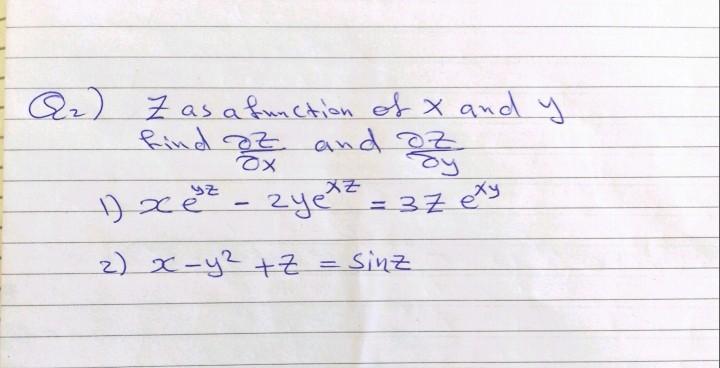 Q2) Z as a function of x and y
find ∂Z/∂x and ∂Z/∂y
1) x e^yz - 2y e^xz = 3Z e^xy
2) x - y² + z = sin z